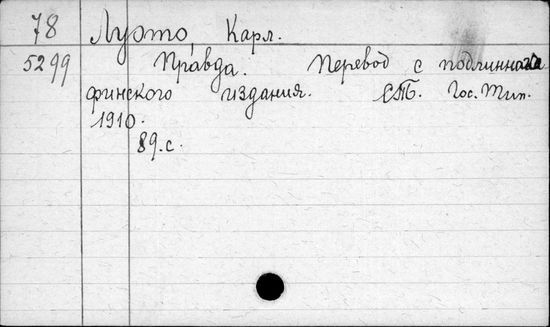 78 Луото, Карл.
5299 Правда. Перевод с подлиннаго
финского издания. СПБ. Гос. Тип.
1910.
89.с.